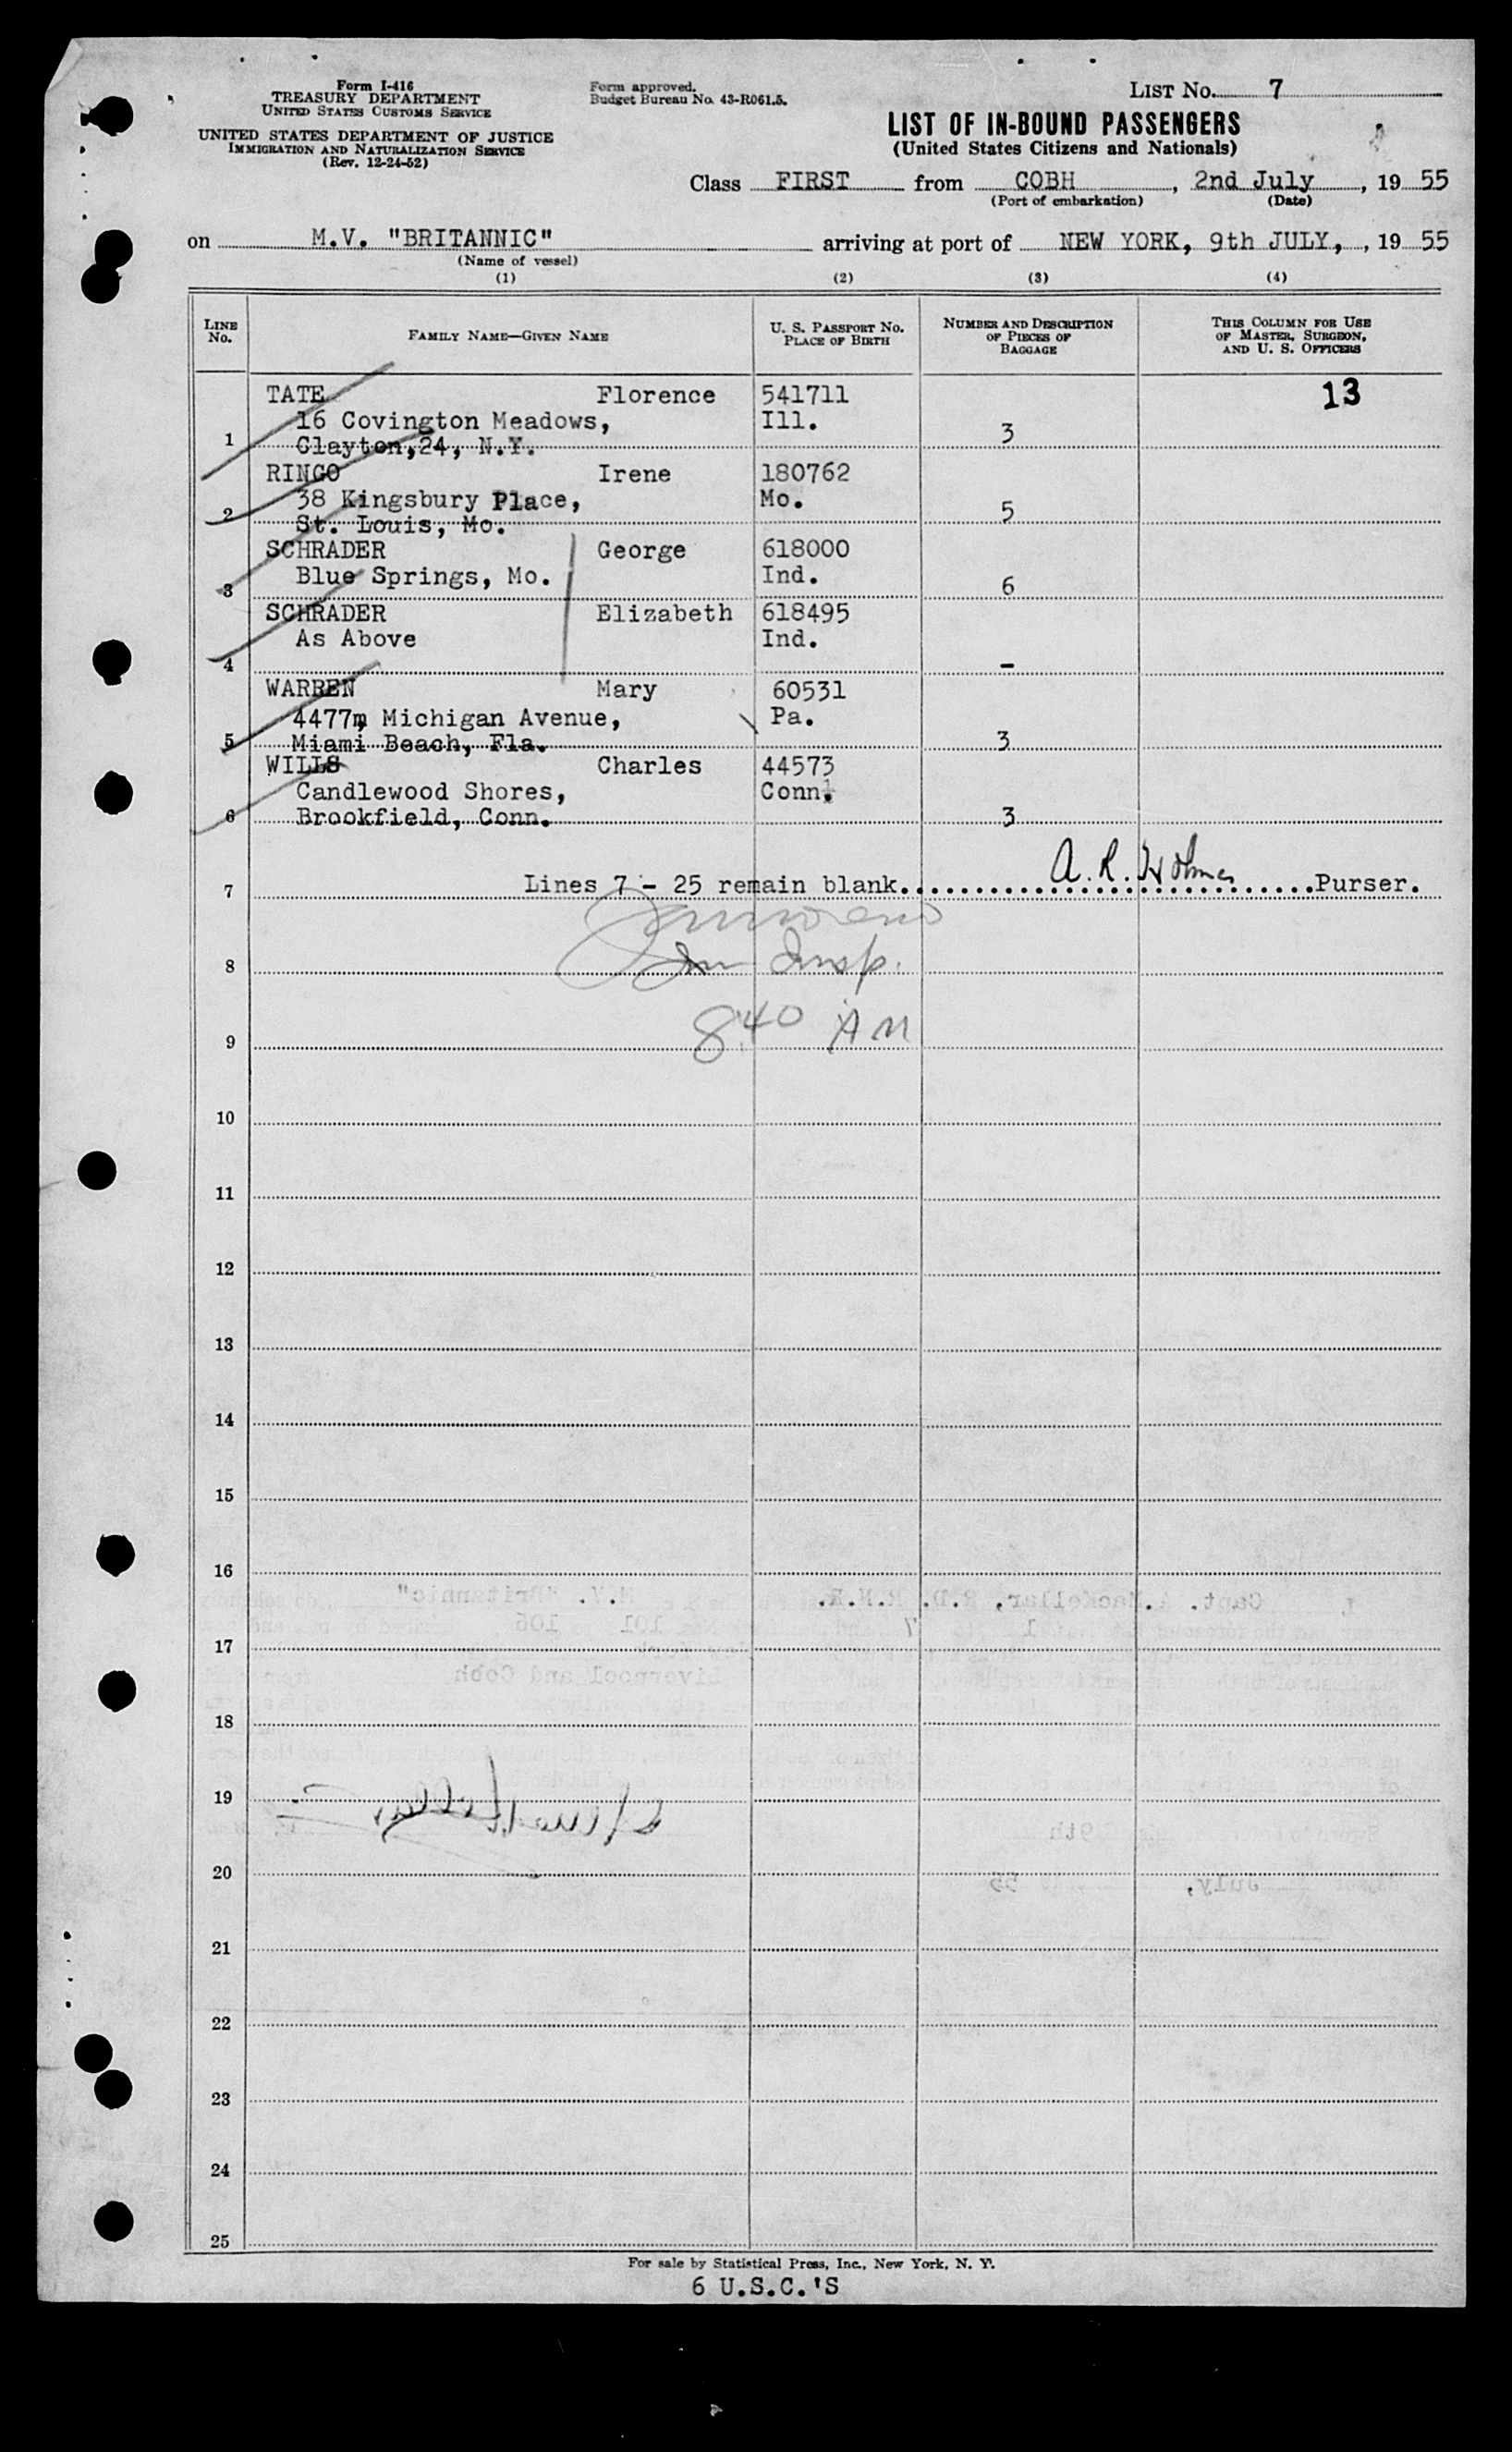 Form I-416
TREASURY DEPARTMENT
UNITED STATES CUSTOMS SERVICE
UNITED STATES DEPARTMENT OF JUSTICE
IMMIGRATION AND NATURALIZATION SERVICE
(Rev. 12-24-52)
Form approved.
Budget Bureau No. 43-R061.5.
LIST No. 7
LIST OF IN-BOUND PASSENGERS
(United States Citizens and Nationals)
Class FIRST from COBH, 2nd July, 19 55
(Port of embarkation) (Date)
on M.V. "BRITANNIC" arriving at port of NEW YORK, 9th JULY, , 19 55
(Name of vessel)
(1) (2) (3) (4)
LINE No. FAMILY NAME—GIVEN NAME U. S. PASSPORT No. PLACE OF BIRTH NUMBER AND DESCRIPTION OF PIECES OF BAGGAGE THIS COLUMN FOR USE OF MASTER, SURGEON, AND U. S. OFFICERS
TATE Florence 541711 13
16 Covington Meadows, Ill.
1 Clayton,24, N.Y. 3
RINGO Irene 180762
38 Kingsbury Place, Mo.
2 St. Louis, Mo. 5
SCHRADER George 618000
Blue Springs, Mo. Ind.
3 6
SCHRADER Elizabeth 618495
As Above Ind.
4 -
WARREN Mary 60531
4477m Michigan Avenue, Pa.
5 Miami Beach, Fla. 3
WILLS Charles 44573
Candlewood Shores, Conn.
6 Brookfield, Conn. 3
7 Lines 7 - 25 remain blank. A. R. Holmes Purser.
8 Imm Insp.
9 8 40 AM
10
11
12
13
14
15
16
M.V. "Britannic" Capt. A.MacKellar, R.D. R.N.R.
17 101 106 1 7
Liverpool and Cobh
18
19
9th
20 55 July,
21
22
23
24
25
For sale by Statistical Press, Inc., New York, N. Y.
6 U.S.C.'S